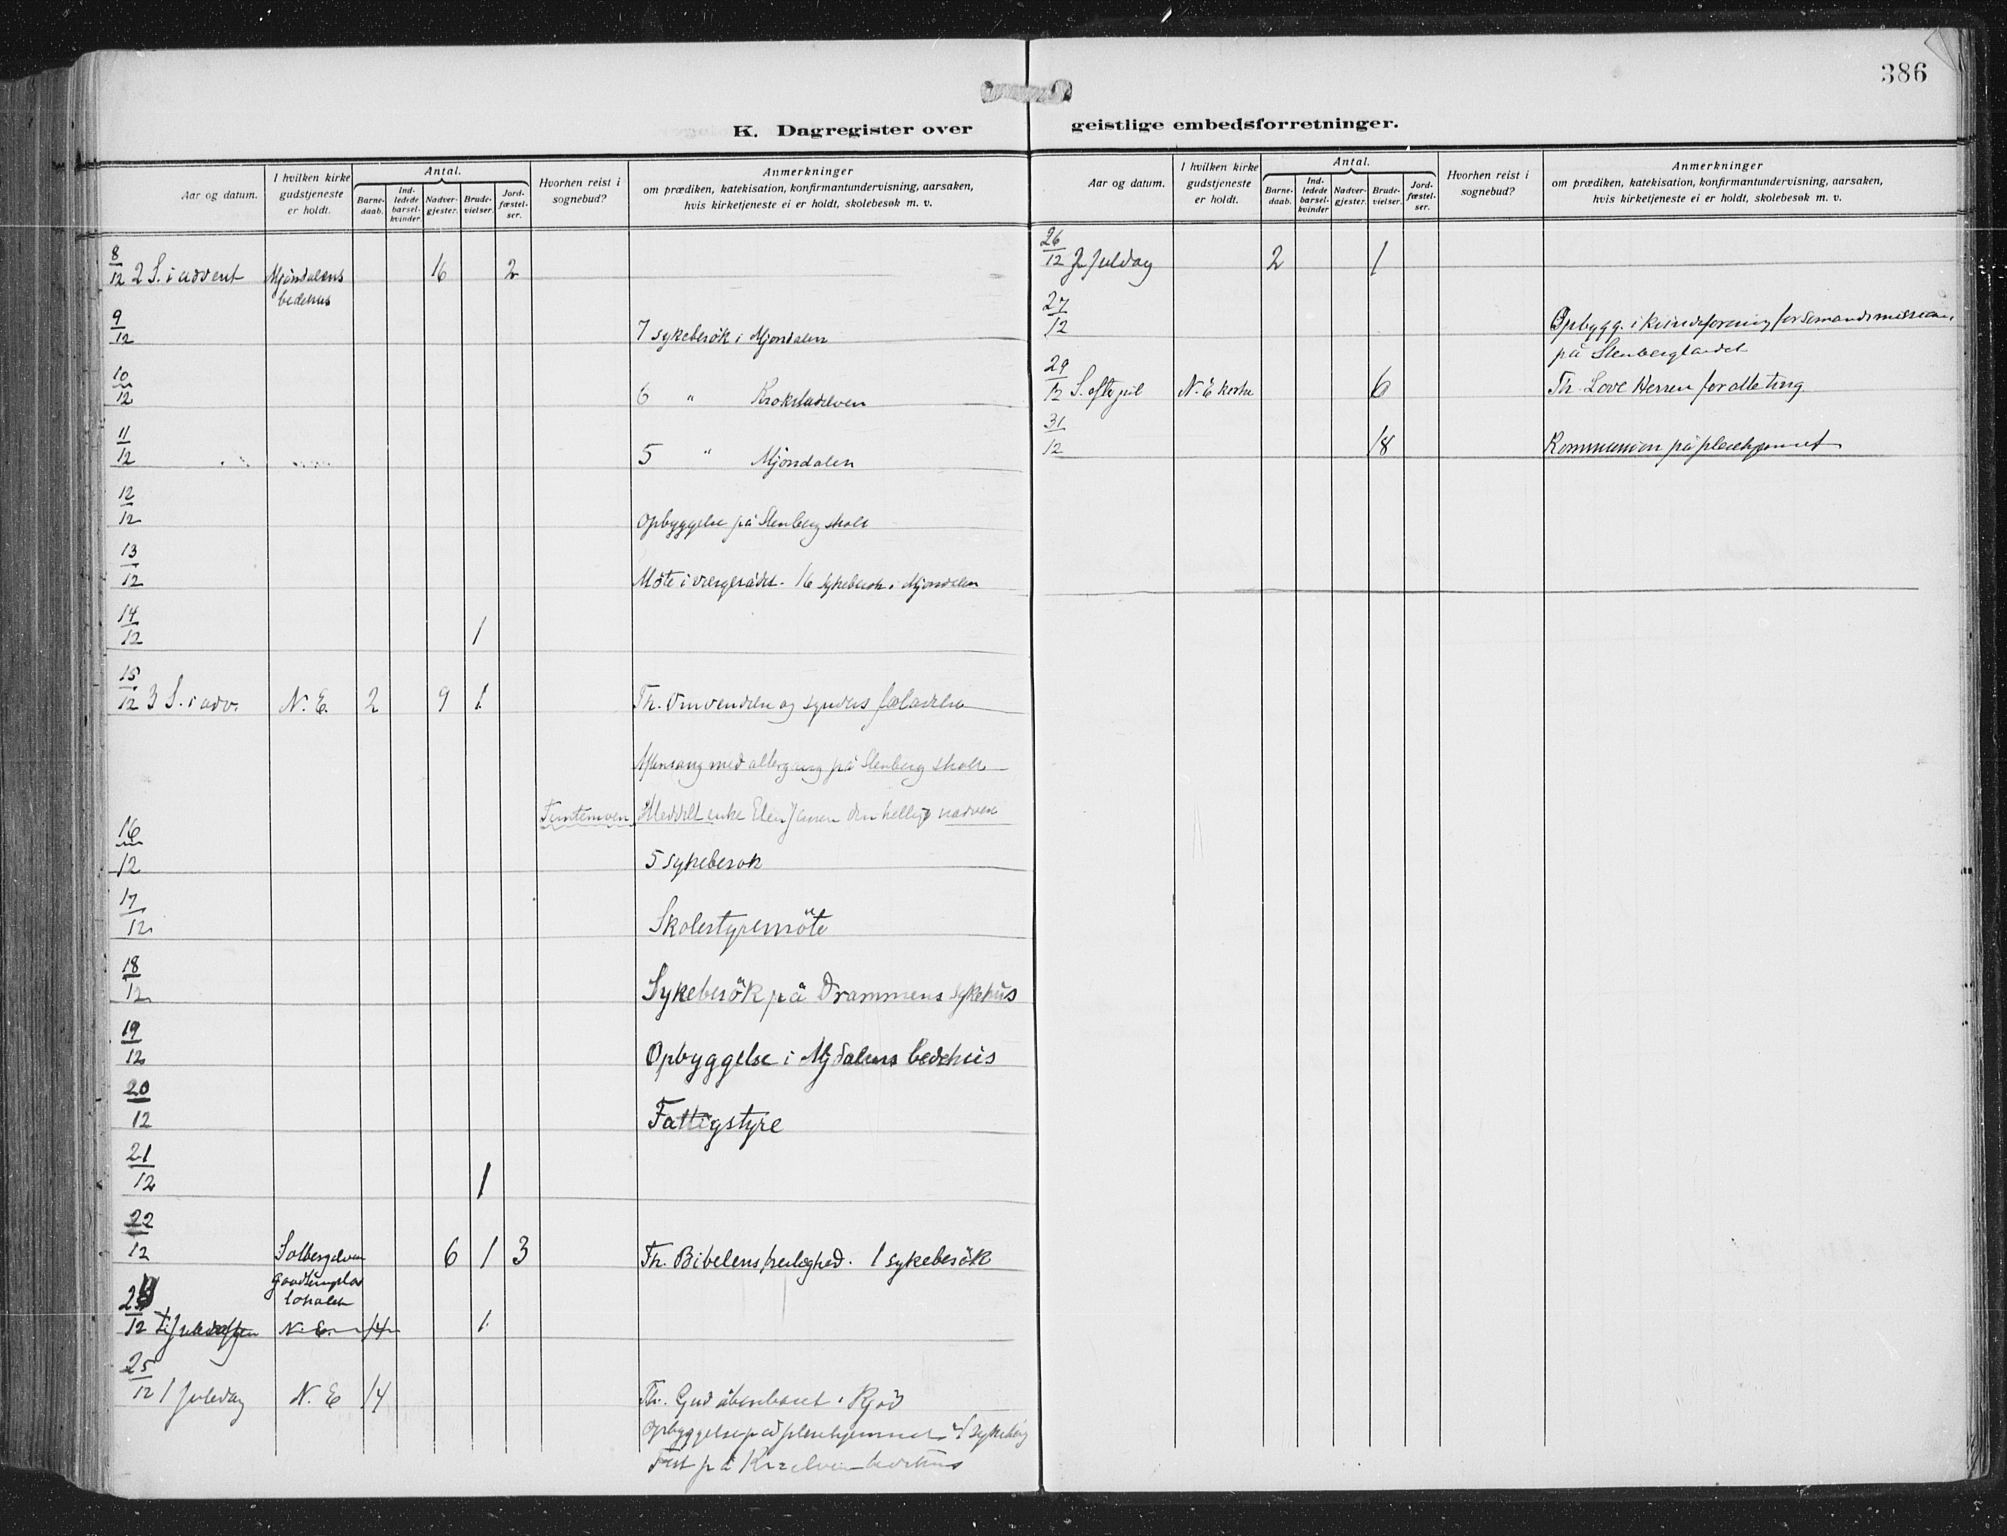 386
K. Dagregister over geistlige embedsforretninger.
Aar og datum.
I hvilken kirke gudstjeneste er holdt.
Antal.
Barne-daab.
Ind-ledede barsel-kvinder.
Nadver-gjester.
Brude-vielser.
Jord-fæstel-ser.
Hvorhen reist i sognebud?
Anmerkninger
om prædiken, katekisation, konfirmantundervisning, aarsaken,
hvis kirketjeneste ei er holdt, skolebesøk m. v.
8/12 2 S. i advent Mjöndalens 16 2
bedehus
9/12 7 sykebesök i Mjöndalen
10/12 6 " Krokstadelven
11/12 5 " Mjöndalen
12/12 Opbyggelse på Stenberg skole
13/12 Möte i vergerådet. 16 sykebesök i Mjöndalen
14/12 1
15/12 3 S. i adv. N. E. 2 9 1 Th. Omvendelse og synders forladelse
Aftensang med altergang på Stenberg skole
Meddelt enke Elen Jensen den hellige nadvere
16/12 5 sykebesök
17/12 Skolestyremöte
18/12 Sykebesök på Drammens sykehus
19/12 Opbyggelse i Mjdalens bedehus
20/12 Fattigstyre
21/12 1
22/12 Solbergelven 6 1 3 Th. Bibelens herlighed. 1 sykebesök
goodtemplar
lokalet
12 Juleaften N. E. 14 1
25/12 1 Juledag N. E 14 Th. Gud åbenbaret i kjöd
Opbyggelse på pleiehjemmet
Fest på bedehus
Aar og datum.
I hvilken kirke gudstjeneste er holdt.
Antal.
Barne-daab.
Ind-ledede barsel-kvinder
Nadver-gjester.
Brude-vielser.
Jord-fæstel-ser.
Hvorhen reist i sognebud?
Anmerkninger
om prædiken, katekisation, konfirmantundervisning, aarsaken,
hvis kirketjeneste ei er holdt, skolebesøk m. v.
26/12 2 Juledag 2 1
27/12 Opbygg. i kvindeforening for sömandsmissionen
på Stenberglandet
29/12 S. efter jul N. E kirke 6 Th. Love Herren for alle ting
31/12 18 Kommunion på pleiehjemmet